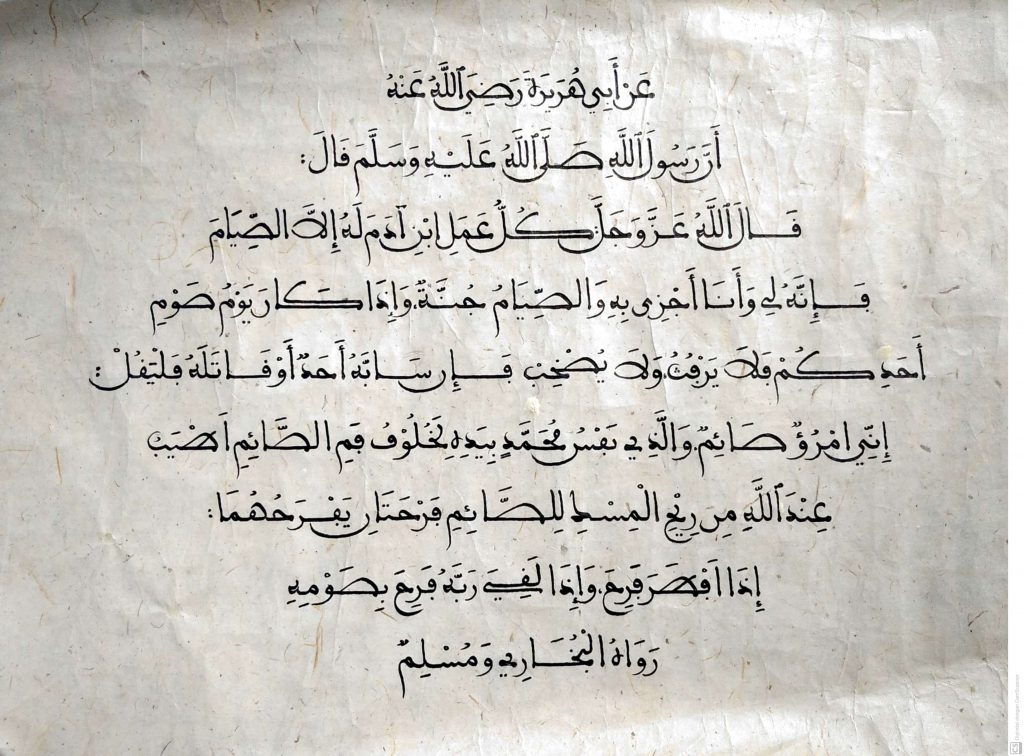 عَنْ أَبِي هُرَيْرَةَ رَضِيَ ٱللَّهُ عَنْهُ
أَنَّ رَسُولَ ٱللَّهِ صَلَّى ٱللَّهُ عَلَيْهِ وَسَلَّمَ قَالَ:
قَالَ ٱللَّهُ عَزَّ وَجَلَّ كُلُّ عَمَلِ ابْنِ آدَمَ لَهُ إِلَّا الصِّيَامَ
فَإِنَّهُ لِي وَأَنَا أَجْزِي بِهِ وَالصِّيَامُ جُنَّةٌ، وَإِذَا كَانَ يَوْمُ صَوْمِ
أَحَدِكُمْ فَلَا يَرْفُثْ، وَلَا يَصْخَبْ فَإِن سَابَّهُ أَحَدٌ أَوْ قَاتَلَهُ فَلْيَقُلْ:
إِنِّي امْرُؤٌ صَائِمٌ، وَالَّذِي نَفْسُ مُحَمَّدٍ بِيَدِهِ لَخُلُوْفُ فَمِ الصَّائِمِ أَطْيَبُ
عِنْدَ ٱللَّهِ مِن رِيْحِ الْمِسْكِ لِلصَّائِمِ فَرْحَتَانِ يَفْرَحُهُمَا:
إِذَا أَفْطَرَ فَرِحَ، وَإِذَا لَقِيَ رَبَّهُ فَرِحَ بِصَوْمِهِ
رَوَاهُ الْبُخَارِي وَمُسْلِمٌ